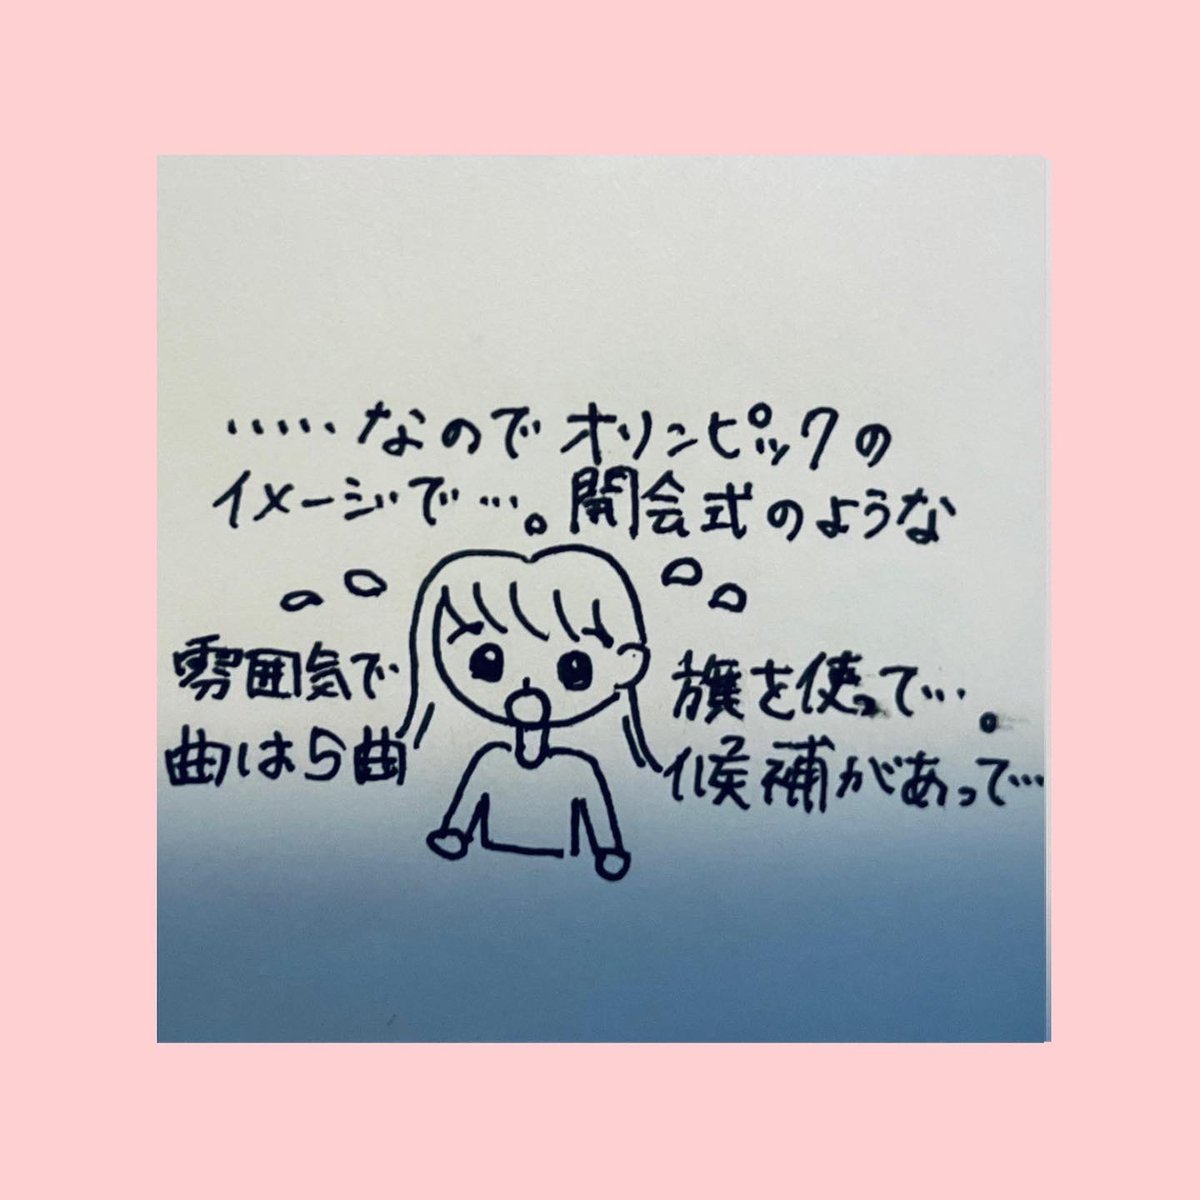 ……なのでオリンピックの
イメージで…。開会式のような
雰囲気で
旗を使って…。
曲は5曲
候補があって…